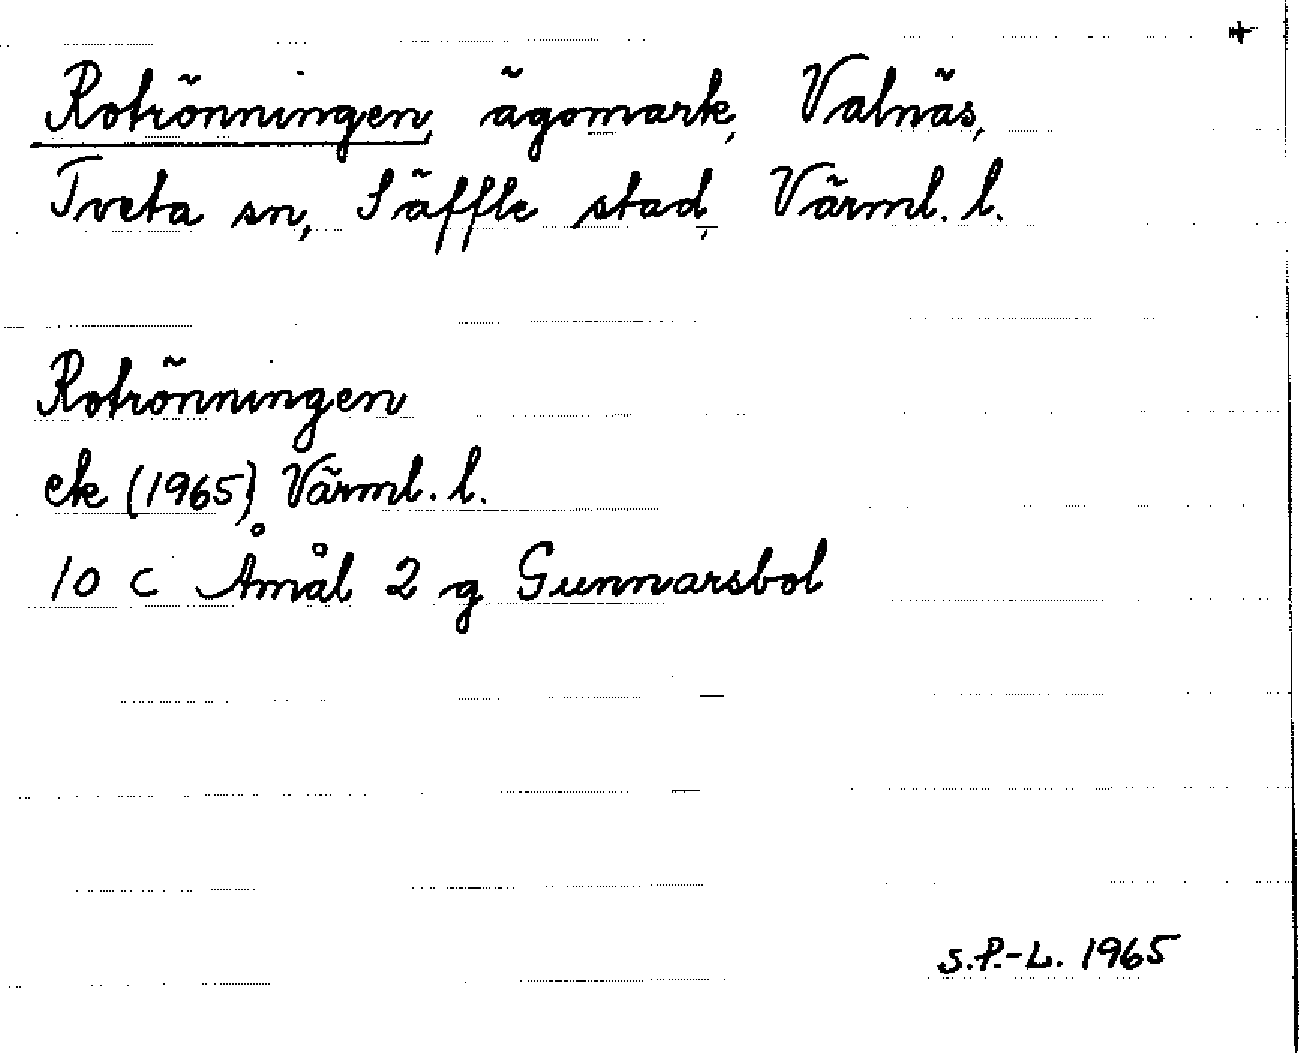 +
Rotrönningen, ägomark, Valnäs,
Tveta sn, Säffle stad, Värml. l.
Rotrönningen
ek (1965) Värml. l.
10 C Åmål 2 g Gunnarsbol
S.P.-L. 1965